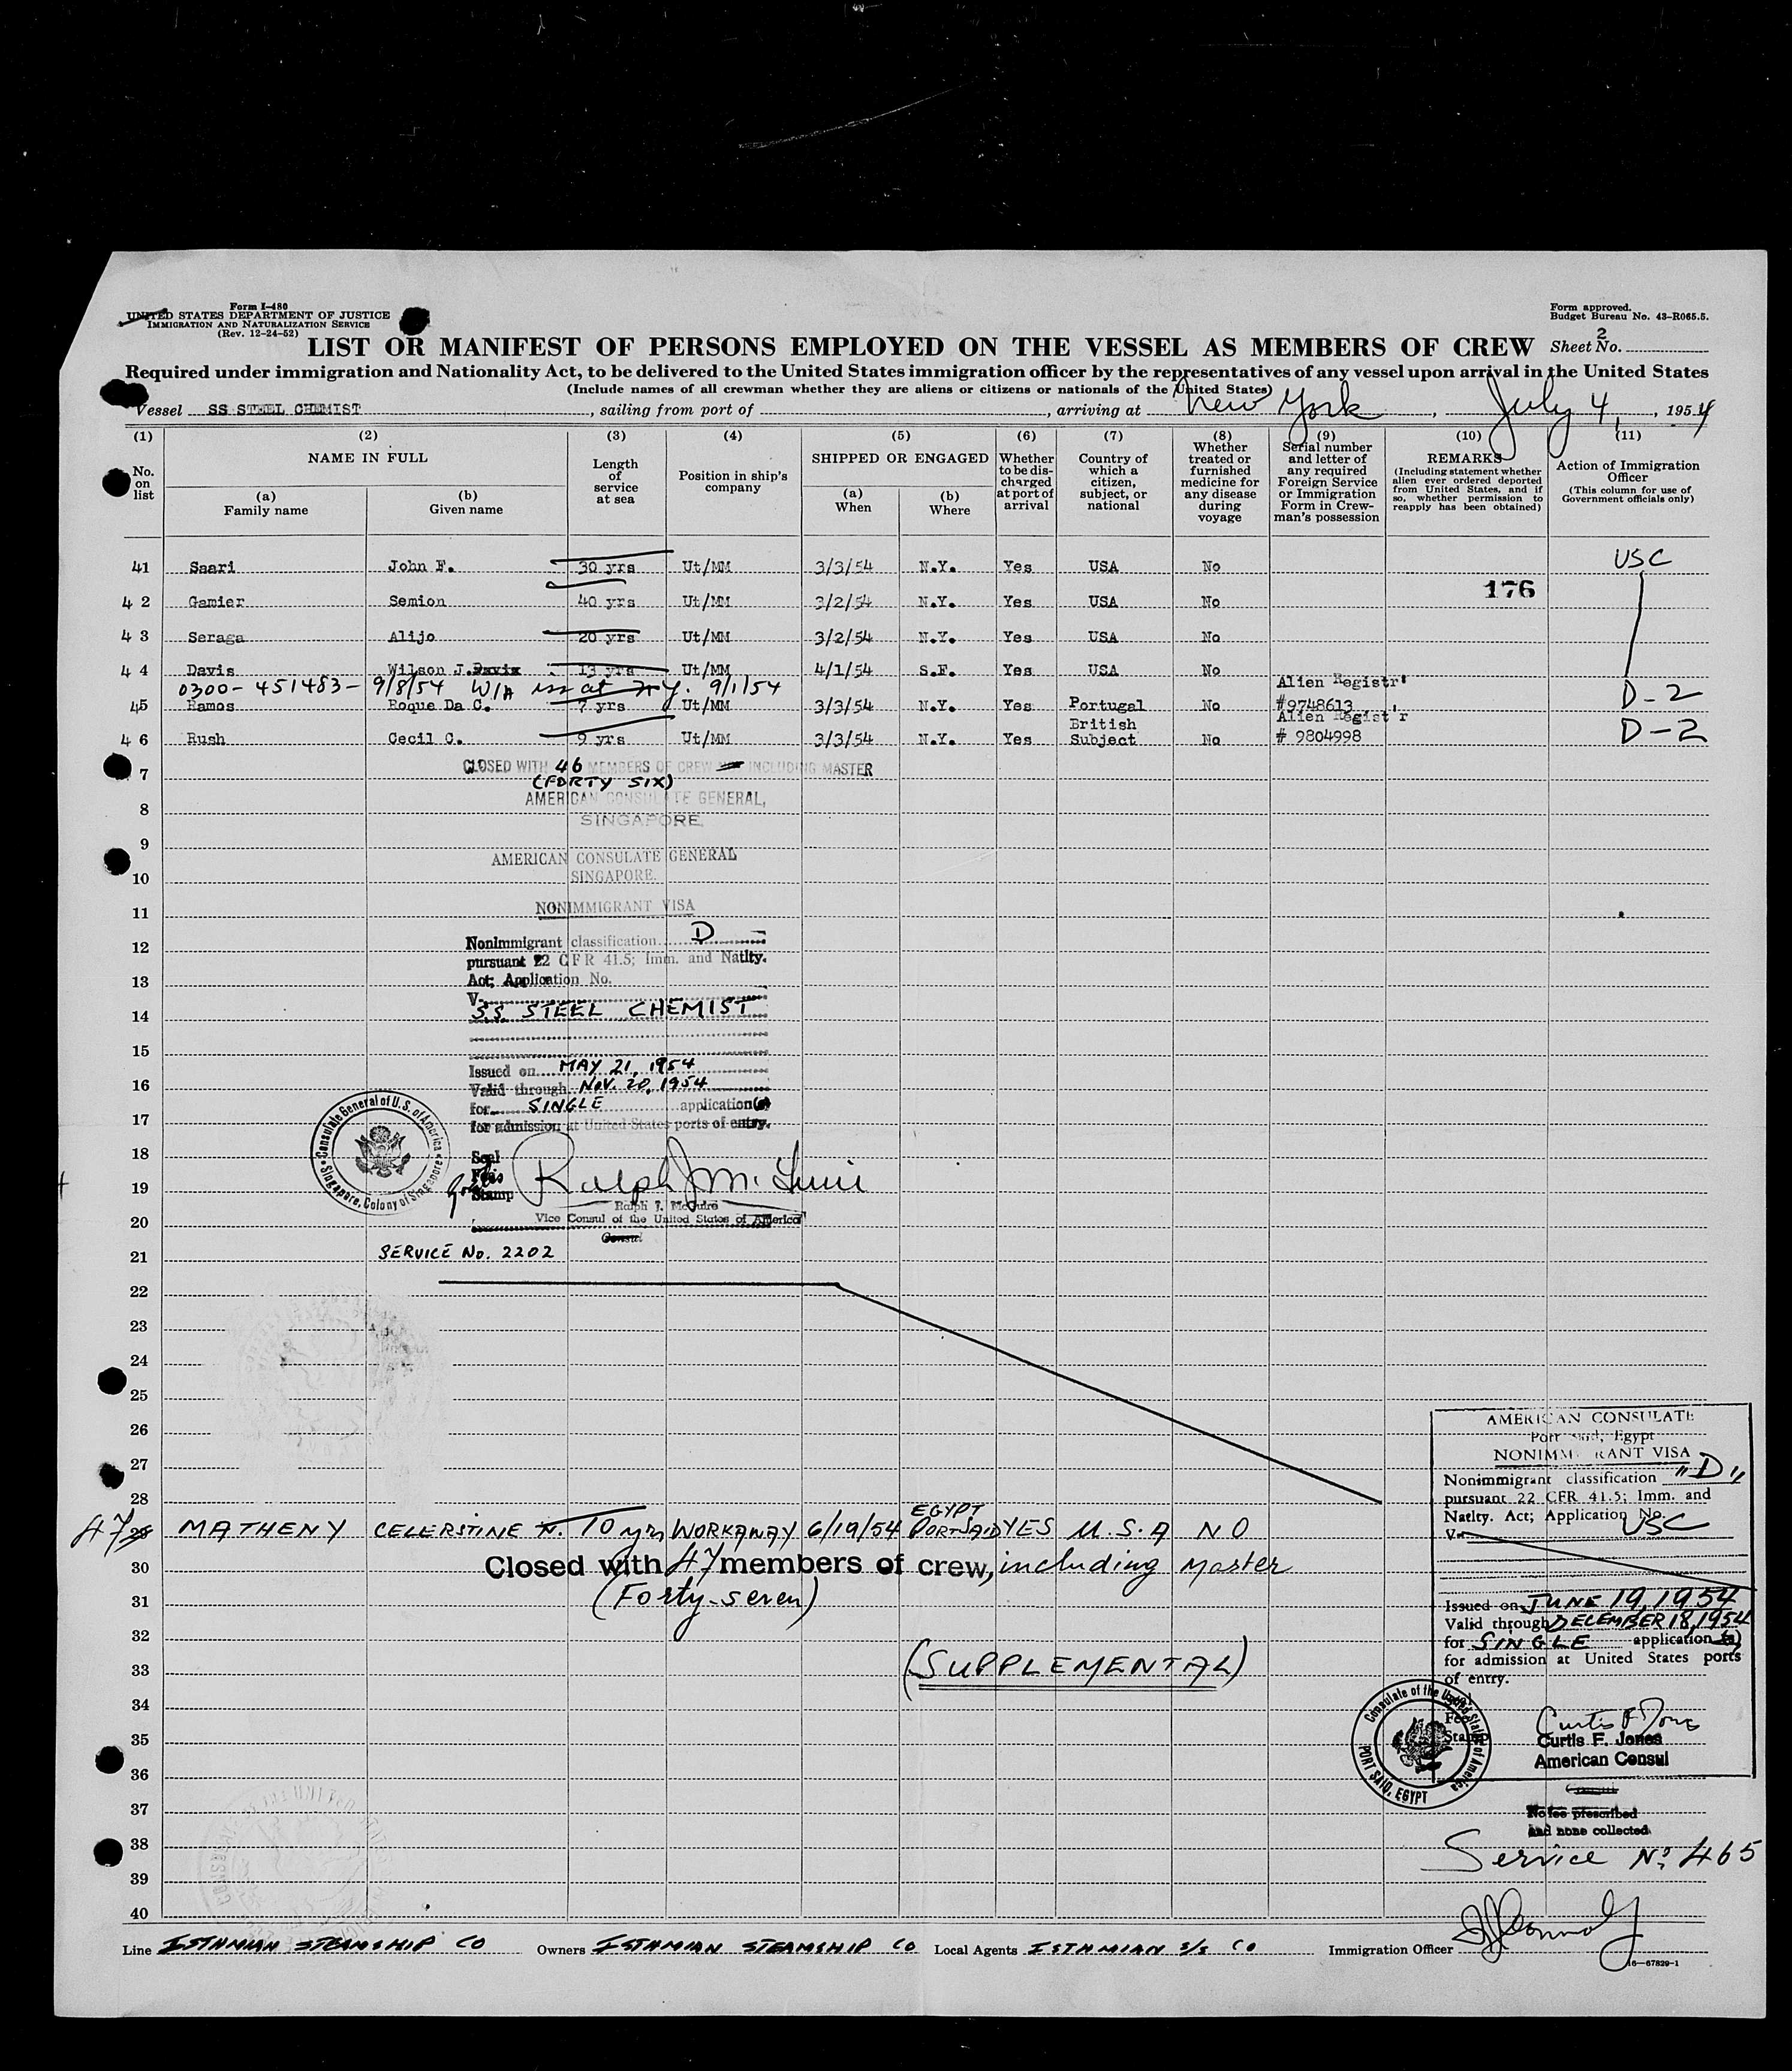 Form I-480
UNITED STATES DEPARTMENT OF JUSTICE
IMMIGRATION AND NATURALIZATION SERVICE
(Rev. 12-24-52)
Form approved.
Budget Bureau No. 43-R065.5.
LIST OR MANIFEST OF PERSONS EMPLOYED ON THE VESSEL AS MEMBERS OF CREW Sheet No. 2
Required under immigration and Nationality Act, to be delivered to the United States immigration officer by the representatives of any vessel upon arrival in the United States
(Include names of all crewman whether they are aliens or citizens or nationals of the United States)
Vessel SS STEEL CHEMIST, sailing from port of , arriving at New York, July 4, 1954
(1) (2) (3) (4) (5) (6) (7) (8) (9) (10) (11)
No. on list
NAME IN FULL
(a) Family name
(b) Given name
Length of service at sea
Position in ship's company
SHIPPED OR ENGAGED
(a) When
(b) Where
Whether to be discharged at port of arrival
Country of which a citizen, subject, or national
Whether treated or furnished medicine for any disease during voyage
Serial number and letter of any required Foreign Service or Immigration Form in Crewman's possession
REMARKS
(Including statement whether alien ever ordered deported from United States, and if so, whether permission to reapply has been obtained)
Action of Immigration Officer
(This column for use of Government officials only)
41 Saari John F. 30 yrs Ut/MM 3/3/54 N.Y. Yes USA No USC
176
42 Gamier Semion 40 yrs Ut/MM 3/2/54 N.Y. Yes USA No
43 Seraga Alijo 20 yrs Ut/MM 3/2/54 N.Y. Yes USA No
44 Davis Wilson J. Davis 13 yrs Ut/MM 4/1/54 S.F. Yes USA No
0300-451483-9/8/54 W/A iss at N.Y. 9/1/54
Alien Registr'
45 Ramos Roque Da C. 7 yrs Ut/MM 3/3/54 N.Y. Yes Portugal No #9748613 D-2
British Alien Regist'r
46 Rush Cecil C. 9 yrs Ut/MM 3/3/54 N.Y. Yes Subject No # 9804998 D-2
7 CLOSED WITH 46 MEMBERS OF CREW INCLUDING MASTER
(FORTY SIX)
8 AMERICAN CONSULATE GENERAL,
SINGAPORE.
9 AMERICAN CONSULATE GENERAL
10 SINGAPORE.
11 NONIMMIGRANT VISA
12 Nonimmigrant classification D
pursuant 22 CFR 41.5; Imm. and Natlty.
13 Act; Application No.
V.
14 S.S. STEEL CHEMIST
15
Issued on MAY 21, 1954
16 Valid through NOV. 20, 1954
for SINGLE application(s)
17 for admission at United States ports of entry.
Consulate General of U.S. of America
Singapore, Colony of Singapore
18 Seal
19 Fee
Stamp
Ralph J. McGuire
Ralph J. McGuire
20 Vice Consul of the United States of America
Consul
21 SERVICE No. 2202
22
23
24
25
26
27
28
4729 MATHENY CELERSTINE N. 10 yrs WORKAWAY 6/19/54 EGYPT PORT SAID YES U.S.A NO
30 Closed with 47 members of crew, including Master
31 (Forty-seven)
32
33 (SUPPLEMENTAL)
34
35
36
37
38
39
40
AMERICAN CONSULATE
Port Said, Egypt
NONIMMIGRANT VISA
Nonimmigrant classification "D"
pursuant 22 CFR 41.5; Imm. and
Natlty. Act; Application No.
V. USC
Issued on JUNE 19, 1954
Valid through DECEMBER 18, 1954
for SINGLE application(s)
for admission at United States ports
of entry.
Seal
Fee
Stamp
Consulate of the United States of America
PORT SAID, EGYPT
Curtis F Jones
Curtis F. Jones
American Consul
Consul
No fee prescribed
and none collected
Service No. 465
Line ISTHMIAN STEAMSHIP CO Owners ISTHMIAN STEAMSHIP CO Local Agents ISTHMIAN S/S CO Immigration Officer
16—67829-1